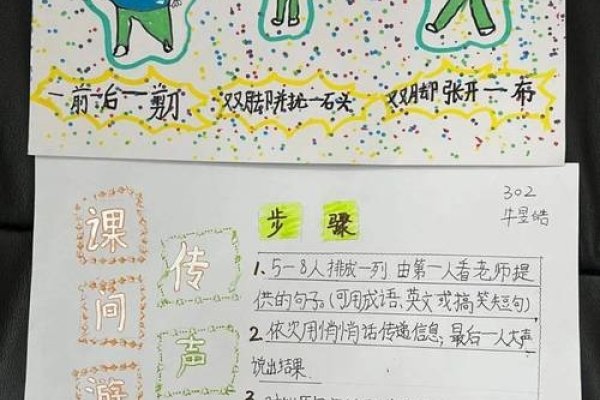 一前一后一剪刀
双脚并拢一石头
双脚张开一布
302
牛昱皓
课间游
传声
步骤
1. 5—8人排成一列 由第一人看老师提
供的句子。(可用成语、英文或搞笑短句)
2. 依次用悄悄话传递信息,最后一人大声
说出结果.
3.